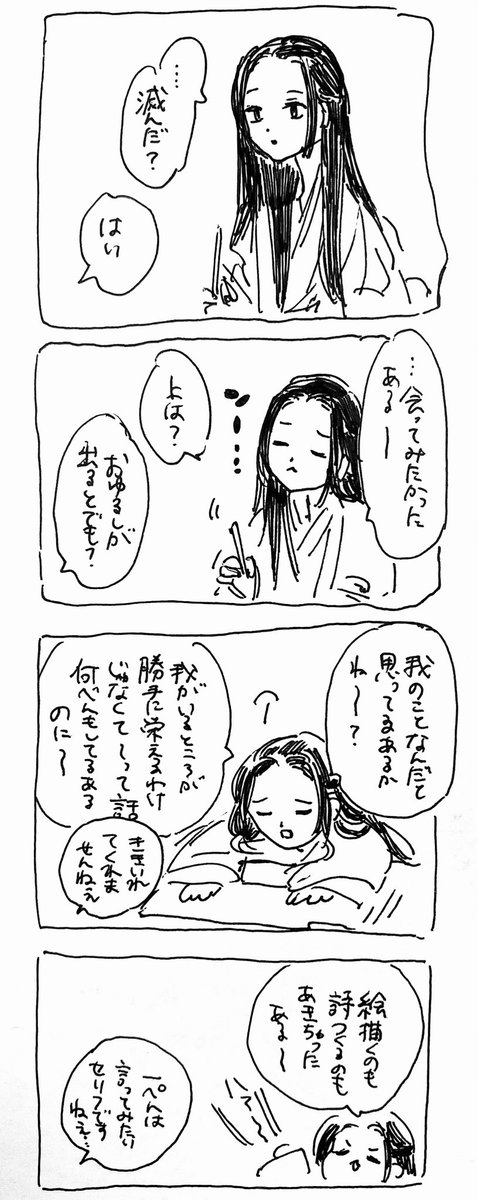 …
滅んだ?
はい
…会ってみたかった
ある〜
上は?
おゆるしが
出るとでも?
我のことなんだと
思ってるあるか
ね〜?
我がいるところが
勝手に栄えるわけ
じゃなくて〜って話
何べんもしてるある
のに〜
ききいれ
てくれま
せんねぇ
絵描くのも
詩つくるのも
あきちゃった
ある〜
一ぺんは
言ってみたい
セリフです
ねぇ…